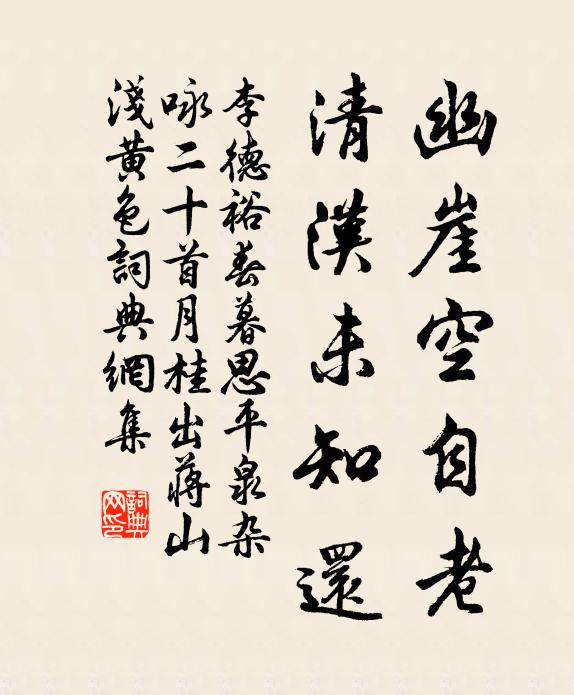 幽崖空自老
清漢未知還
李德裕春暮思平泉杂
咏二十首月桂出蒋山
淺黃色詞典網集
詞典
网印